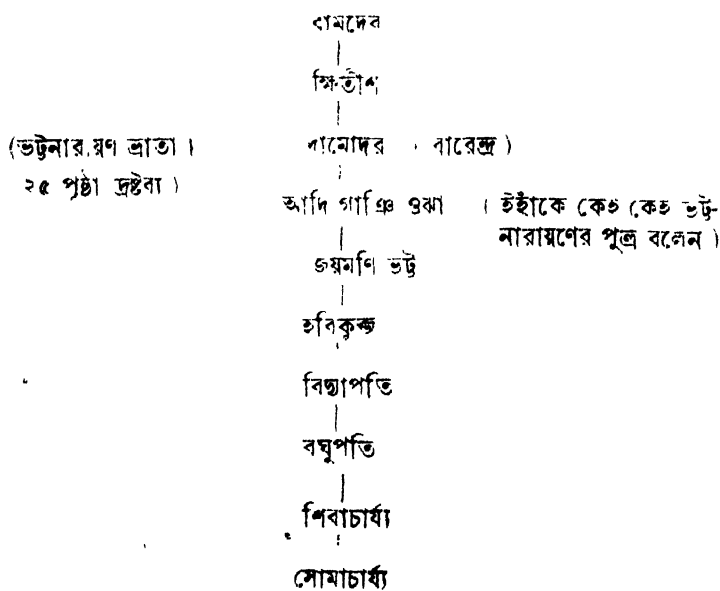 বামদেব
ক্ষিতীশ
(ভট্টনারায়ণ ভ্রাতা। দামোদর (বারেন্দ্র)
২৫ পৃষ্ঠা দ্রষ্টব্য)
আদি গাঞি ওঝা (ইহাঁকে কেহ কেহ ভট্ট-
নারায়ণের পুত্র বলেন)
জয়মণি ভট্ট
হরিকুব্জ
বিদ্যাপতি
রঘুপতি
শিবাচার্য্য
সোমাচার্য্য